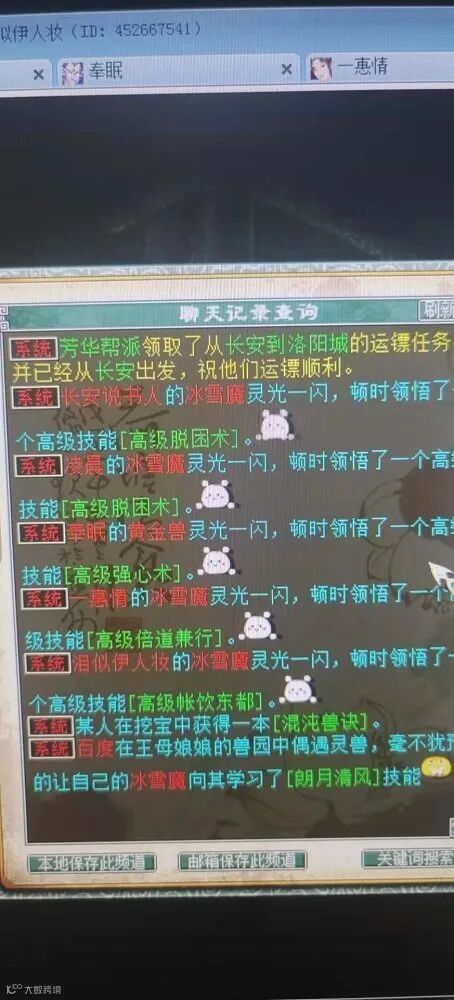 似伊人妆（ID: 452667541）
奉眠
一惠情
聊天记录查询
刷新
系统 芳华帮派领取了从长安到洛阳城的运镖任务
并已经从长安出发，祝他们运镖顺利。
系统 长安说书人的冰雪魔灵光一闪，顿时领悟了一
个高级技能[高级脱困术]。
系统 凌晨的冰雪魔灵光一闪，顿时领悟了一个高级
技能[高级脱困术]。
系统 奉眠的黄金兽灵光一闪，顿时领悟了一个高级
技能[高级强心术]。
系统 一惠情的冰雪魔灵光一闪，顿时领悟了一个高
级技能[高级倍道兼行]。
系统 泪似伊人妆的冰雪魔灵光一闪，顿时领悟了一
个高级技能[高级帐饮东都]。
系统 某人在挖宝中获得一本[混沌兽诀]。
系统 百度在王母娘娘的兽园中偶遇灵兽，毫不犹豫
的让自己的冰雪魔向其学习了[朗月清风]技能
本地保存此频道
邮箱保存此频道
关键词搜索
大数跨境